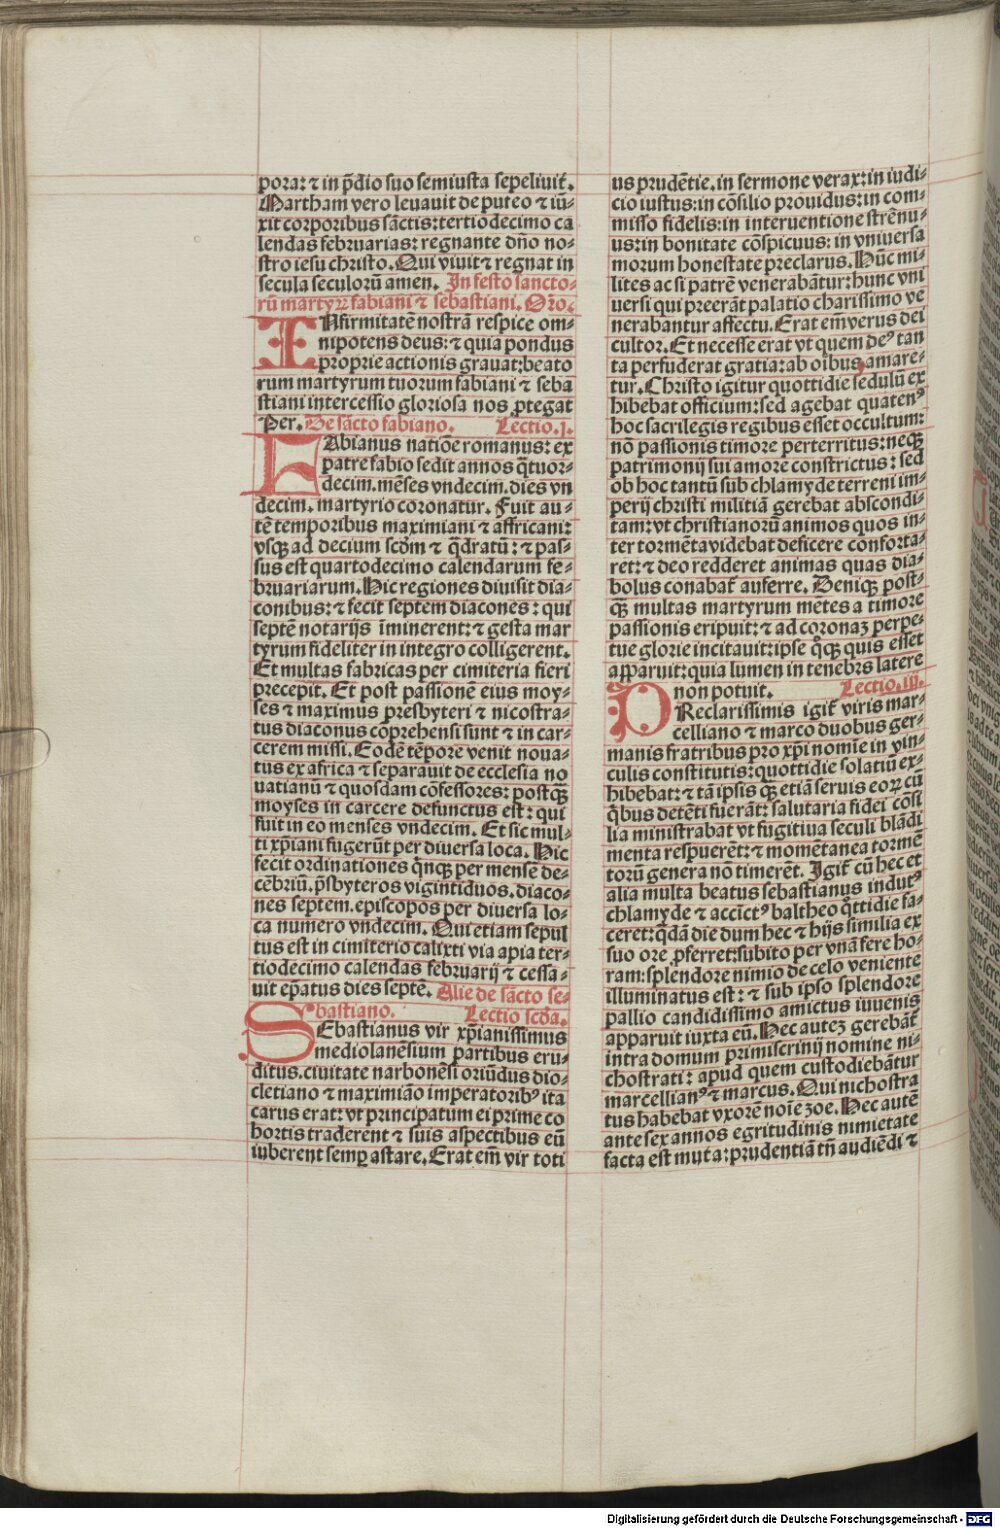 pora: ⁊ in p̄dio suo semiusta sepeliuit̄.
Martham vero leuauit de puteo ⁊ iū-
xit corporibus sāctis: tertiodecimo ca
lendas februarias: regnante dn̄o no-
stro iesu christo. Qui viuit ⁊ regnat in
secula seculorū amen. In festo sancto-
rū martyrꝝ fabiani ⁊ sebastiani. Or̄o.
INfirmitatē nostrā respice om-
nipotens deus: ⁊ quia pondus
proprie actionis grauat: beato
rum martyrum tuorum fabiani ⁊ seba
stiani intercessio gloriosa nos ꝓtegat
Per. De sācto fabiano. Lectio. j.
FAbianus natiōe romanus: ex
patre fabio sedit annos q̄tuor-
decim. mēses vndecim. dies vn
decim. martyrio coronatur. Fuit au-
tē temporibus maximiani ⁊ affricani:
vsqꝫ ad decium scd̄m ⁊ q̄dratū: ⁊ pas-
sus est quartodecimo calendarum fe-
bruariarum. Hic regiones diuisit dia-
conibus: ⁊ fecit septem diacones: qui
septē notarijs īminerent: ⁊ gesta mar
tyrum fideliter in integro colligerent.
Et multas fabricas per cimiteria fieri
precepit. Et post passionē eius moy-
ses ⁊ maximus presbyteri ⁊ nicostra-
tus diaconus cōprehensi sunt ⁊ in car-
cerem missi. Eodē tēpore venit noua-
tus ex africa ⁊ separauit de ecclesia no
uatianū ⁊ quosdam cōfessores: postqꝫ̄
moyses in carcere defunctus est: qui
fuit in eo menses vndecim. Et sic mul-
ti xp̄iani fugerūt per diuersa loca. Hic
fecit ordinationes q̄nqꝫ per mensē de-
cēbriū. p̄sbyteros vigintiduos. diaco-
nes septem. episcopos per diuersa lo-
ca numero vndecim. Qui etiam sepul
tus est in cimiterio calixti via apia ter-
tiodecimo calendas februarij ⁊ cessa-
uit ep̄atus dies septē. Alie de sācto se-
bastiano. Lectio scd̄a.
SEbastianus vir xp̄ianissimus
mediolanēsium partibus eru-
ditus. ciuitate narbonēsi oriūdus dio-
cletiano ⁊ maximiāo imperatoribꝰ ita
carus erat: vt principatum ei prime co
hortis traderent ⁊ suis aspectibus eū
iuberent semꝑ astare. Erat em̄ vir toti
us prudētie. in sermone verax: in iudi-
cio iustus: in cōsilio prouidus: in com-
misso fidelis: in interuentione strēnu-
us: in bonitate cōspicuus: in vniuersa
morum honestate preclarus. Hūc mi-
lites ac si patrē venerabātur: hunc vni
uersi qui preerāt palatio charissimo ve
nerabantur affectu. Erat em̄ verus dei
cultor. Et necesse erat vt quem deꝰ tan
ta perfuderat gratia: ab oībus amare-
tur. Christo igitur quottidie sedulū ex
hibebat officium: sed agebat quatenꝰ
hoc sacrilegis regibus esset occultum:
nō passionis timore perterritus: neqꝫ
patrimonij sui amore constrictus: sed
ob hoc tantū sub chlamyde terreni im-
perij christi militiā gerebat abscondi-
tam: vt christianorū animos quos in-
ter tormēta videbat deficere conforta-
ret: ⁊ deo redderet animas quas dia-
bolus conabat̄ auferre. Deniqꝫ post-
qꝫ̄ multas martyrum mētes a timore
passionis eripuit: ⁊ ad coronaꝫ perpe-
tue glorie incitauit: ipse qͦqꝫ quis esset
apparuit: quia lumen in tenebrs latere
non potuit. Lectio. iij.
PReclarissimis igit̄ viris mar-
celliano ⁊ marco duobus ger-
manis fratribus pro xp̄i nomīe in vin-
culis constitutis: quottidie solatiū ex-
hibebat: ⁊ tā ipsis qꝫ̄ etiā seruis eorꝝ cū
q̄bus detēti fuerāt: salutaria fidei cōsi
lia ministrabat vt fugitiua seculi blādi
menta respuerēt: ⁊ momētanea tormē
torū genera nō timerēt. Igit̄ cū hec et
alia multa beatus sebastianus indutꝰ
chlamyde ⁊ accīctꝰ baltheo qͦttidie fa-
ceret: q̄dā die dum hec ⁊ hijs similia ex
suo ore ꝓferret: subito per vnā fere ho-
ram: splendore nimio de celo veniente
illuminatus est: ⁊ sub ipso splendore
pallio candidissimo amictus iuuenis
apparuit iuxta eū. Hec auteꝫ gerebāt̄
intra domum primiscrinij nomine ni-
chostrati: apud quem custodiebātur
marcellianꝰ ⁊ marcus. Qui nichostra
tus habebat vxorē noīe zoe. Hec autē
ante sex annos egritudinis nimietate
facta est muta: prudentiā tn̄ audiēdi ⁊
Digitalisierung gefördert durch die Deutsche Forschungsgemeinschaft - DFG